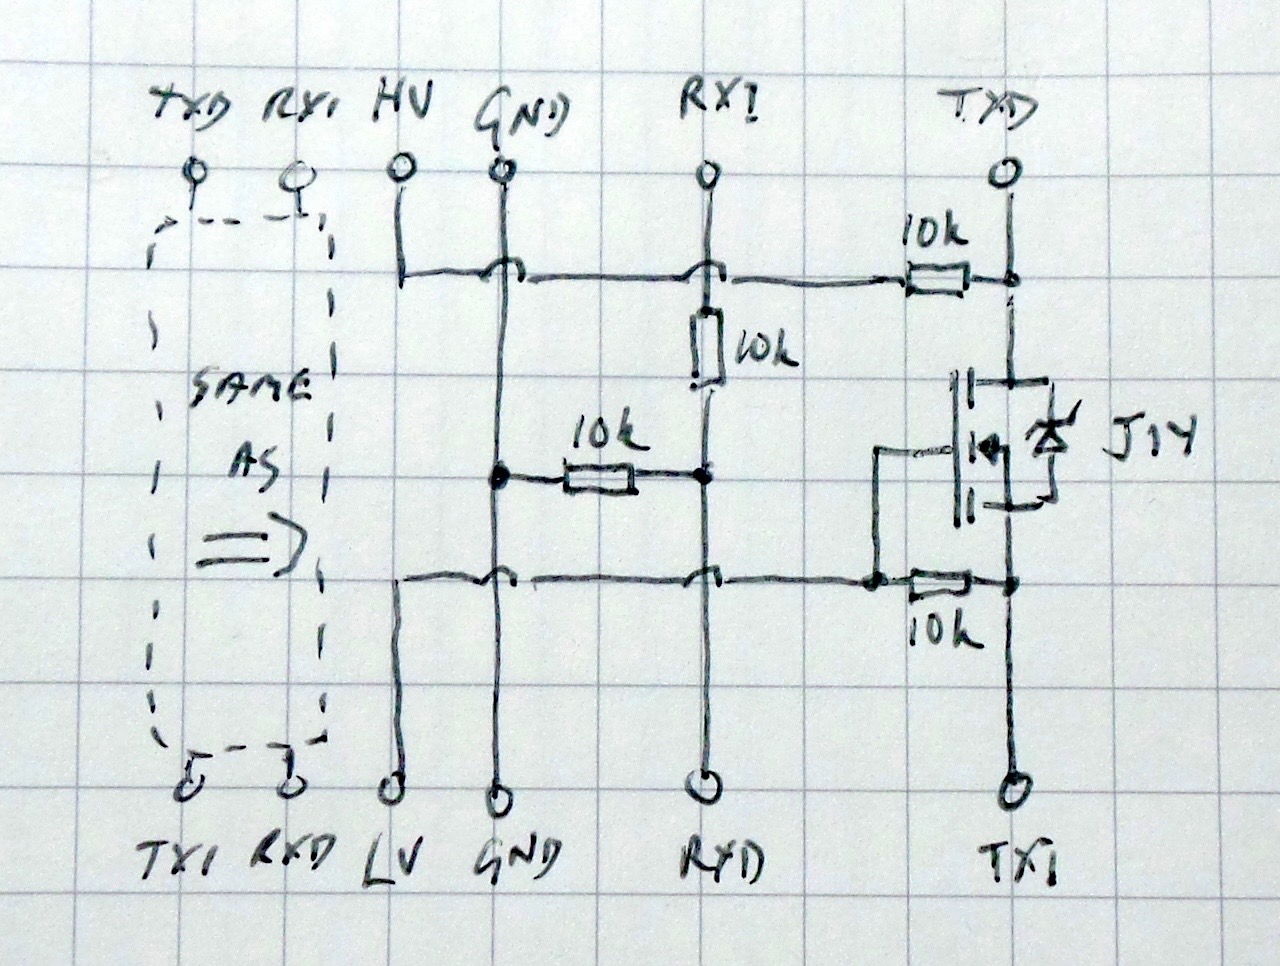 TXD RXI HV GND RXI TXD
10k
10k
SAME
10k
J1Y
AS
=>
10k
TXI RXD LV GND RXD TXI